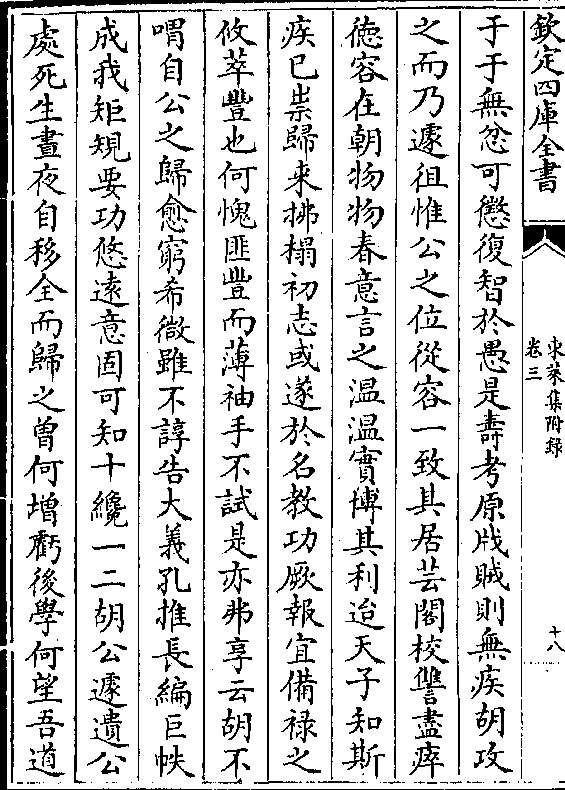 欽定四庫全書
東萊集附録
卷三
十八
于于無忿可懲復智於愚是壽考原戕賊則無疾胡攻
之而乃遽徂惟公之位從容一致其居芸閣校讐盡瘁
徳容在朝物物春意言之温温實博其利迨天子知斯
疾已祟歸來拂榻初志或遂於名教功厥報宜備禄之
攸萃豐也何愧匪豐而薄袖手不試是亦弗享云胡不
喟自公之歸愈窮希微雖不諄告大義孔推長編巨帙
成我矩規要功悠遠意固可知十纔一二胡公遽遺公
處死生晝夜自移全而歸之曽何増虧後學何望吾道